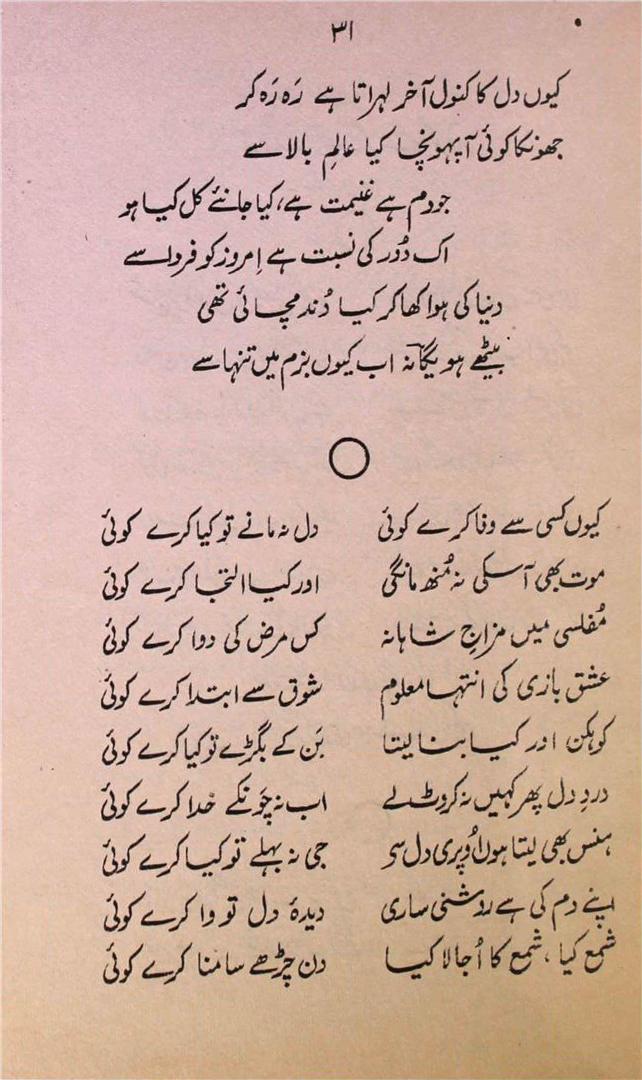 ۳۱
کیوں دل کا کنول آخر لہراتا ہے رَہ رَہ کر
جھونکا کوئی آپہونچا کیا عالمِ بالا سے
جو دم ہے غنیمت ہے، کیا جانئے کل کیا ہو
اک دُور کی نسبت ہے اِمروز کو فردا سے
دنیا کی ہوا کھا کر کیا دُند مچائی تھی
بیٹھے ہو یگانہؔ اب کیوں بزم میں تنہا سے
کیوں کسی سے وفا کرے کوئی دل نہ مانے تو کیا کرے کوئی
موت بھی آسکی نہ مُنھ مانگی اور کیا التجا کرے کوئی
مُفلسی میں مزاجِ شاہانہ کس مرض کی دوا کرے کوئی
عشق بازی کی انتہا معلوم شوق سے ابتدا کرے کوئی
کوہکن اور کیا بنا لیتا بَن کے بگڑے تو کیا کرے کوئی
دردِ دل پھر کہیں نہ کروٹ لے اب نہ چَونکے خدا کرے کوئی
ہنس بھی لیتا ہوں اُوپری دل سی جی نہ بہلے تو کیا کرے کوئی
اپنے دم کی ہے روشنی ساری دیدۂ دل تو وا کرے کوئی
شمع کیا، شمع کا اُجالا کیا دن چڑھے سامنا کرے کوئی